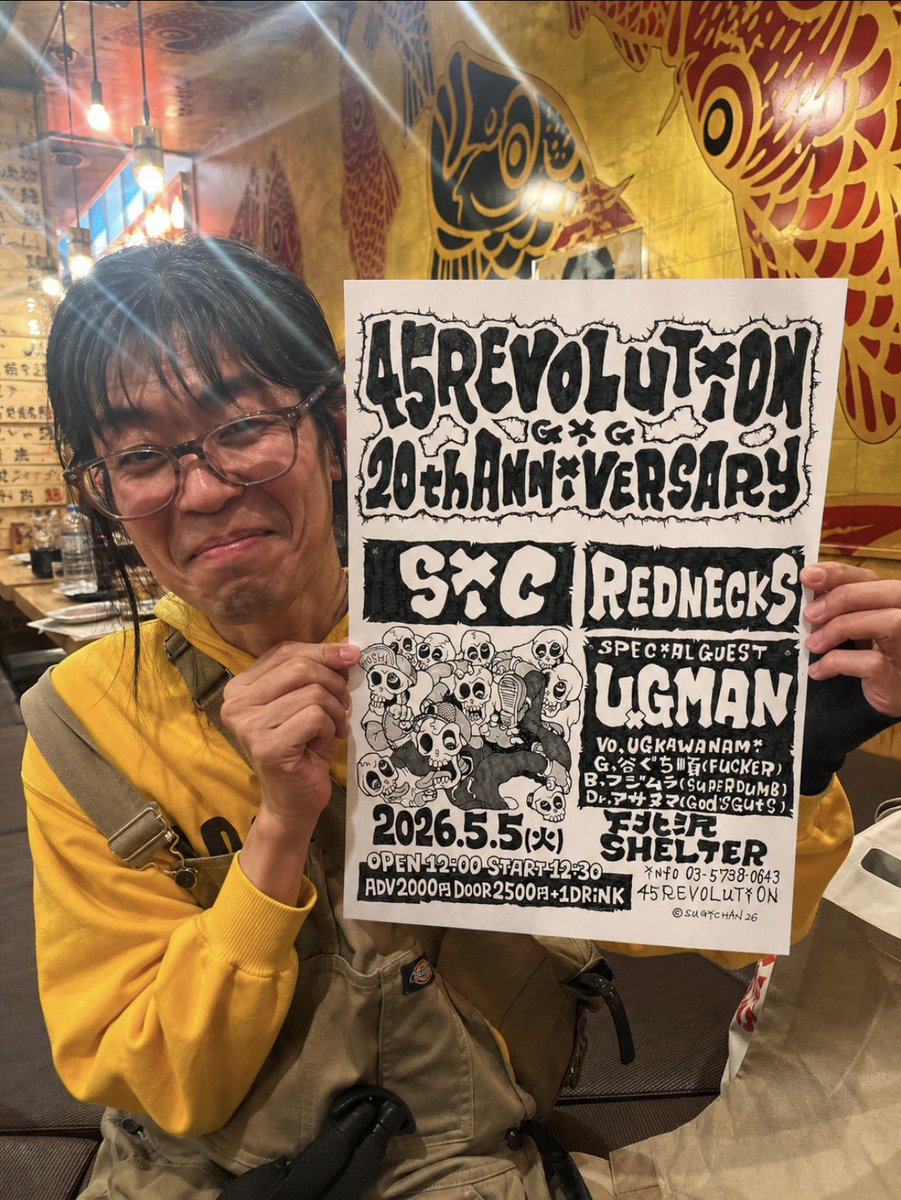 45REVOLUTiON
GiG
20thANNiVERSARY
SiC
REDNECKS
SPECiALGUEST
UGMAN
VO.UGKAWANAMi
G.谷ぐち順(FUCKER)
B.フジムラ(SUPERDUMB)
Dr.アサヌマ(GOD'SGUtS)
2026.5.5(火)
OPEN12:00 START12:30
ADV2000円DOOR2500円+1DRiNK
下北沢
SHELTER
iNFO 03-5738-0643
45REVOLUTiON
©SUGiCHAN 26
Dickies